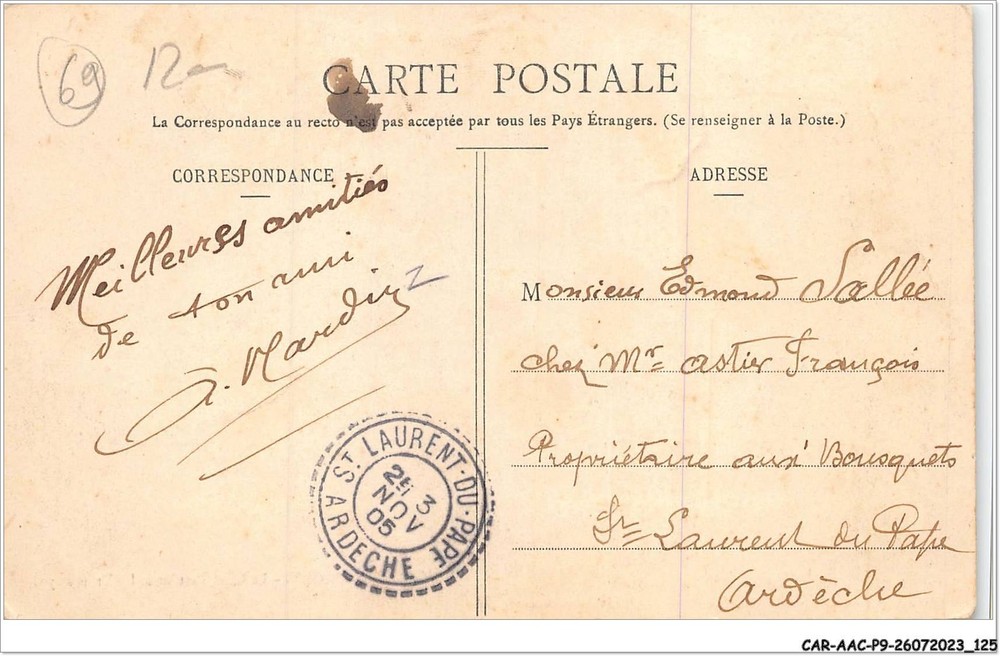 69
CARTE POSTALE
La Correspondance au recto n'est pas acceptée par tous les Pays Étrangers. (Se renseigner à la Poste.)
CORRESPONDANCE
Meilleures amitiés
de ton ami
A. Mardin
ADRESSE
Monsieur Edmond Sallée
chez Mr astier François
Propriétaire aux Bousquets
St Laurent du Pape
Ardèche
ST LAURENT-DU-PAPE
3
NOV
05
ARDECHE
CAR-AAC-P9-26072023_125